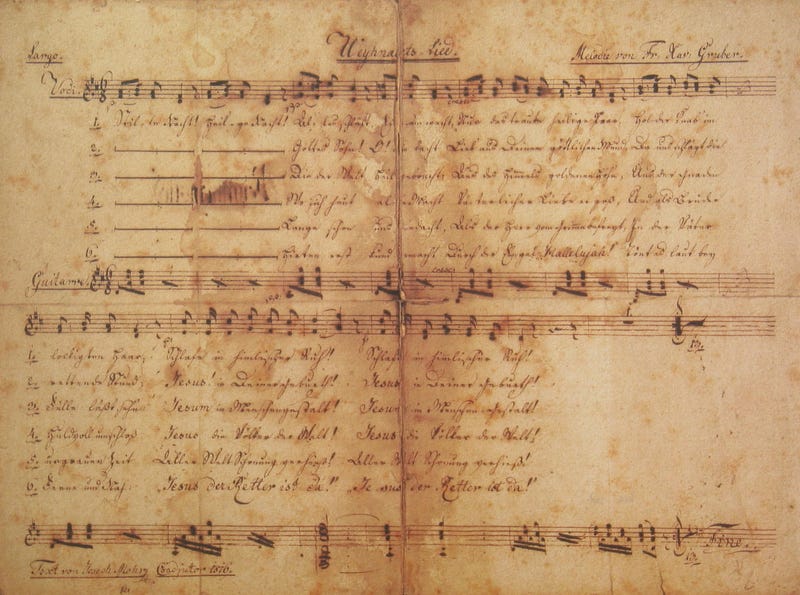 Largo. Weyhnachts-Lied. Melodie von Fr. Xav. Gruber.
Voci.
1. Stille Nacht! Heilige Nacht! Alles schläft. Einsam wacht, Nur das traute heilige Paar. Holder Knab' im
2. Gottes Sohn! O! wie lacht Lieb' aus Deinem göttlichen Mund, Da uns schlägt die
3. Die der Welt Heil gebracht; Aus des Himmels goldenen Höhn, Aus der Gnaden
4. Wo sich heut alle Macht Väterlicher Liebe ergoß, Und als Bruder
5. Lange schon uns bedacht, Als der Herr vom Grimme befreyt, In der Väter
6. Hirten erst kund gemacht Durch der Engel Hallelujah! Tönt es laut bey
Guitarre.
1. lockigten Haar; Schlafe in himlischer Ruh! Schlafe in himlischer Ruh!
2. rettende Stund; Jesus! in Deiner Geburth! Jesus in Deiner Geburth!
3. Fülle läßt sehn Jesum in Menschengestalt! Jesum in Menschengestalt!
4. Huldvoll umschloß Jesus die Völker der Welt! Jesus die Völker der Welt!
5. urgrauen Zeit Aller Welt Schonung verhieß! Aller Welt Schonung verhieß!
6. Ferne und Nah: "Jesus der Retter ist da!" "Jesus der Retter ist da!"
Fine.
Text von Joseph Mohr Coadjutor 1816.